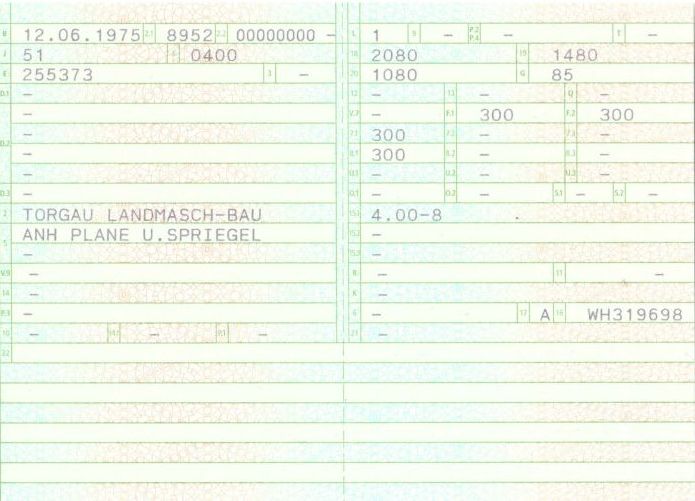 B 12.06.1975 2.1 8952 2.2 00000000 -
J 51 4 0400
E 255373 3 -
D.1 -
-
D.2 -
-
-
D.3 -
2 TORGAU LANDMASCH-BAU
5 ANH PLANE U.SPRIEGEL
-
V.9 -
14 -
P.3 -
10 - 14.1 - P.1 -
22
L 1 9 - P.2 P.4 - T -
18 2080 19 1480
20 1080 G 85
12 - 13 - Q -
V.7 - F.1 300 F.2 300
7.1 300 7.2 - 7.3 -
8.1 300 8.2 - 8.3 -
U.1 - U.2 - U.3 -
O.1 - O.2 - S.1 - S.2 -
15.1 4.00-8
15.2 -
15.3 -
R - 11 -
K -
6 - 17 A 16 WH319698
21 -